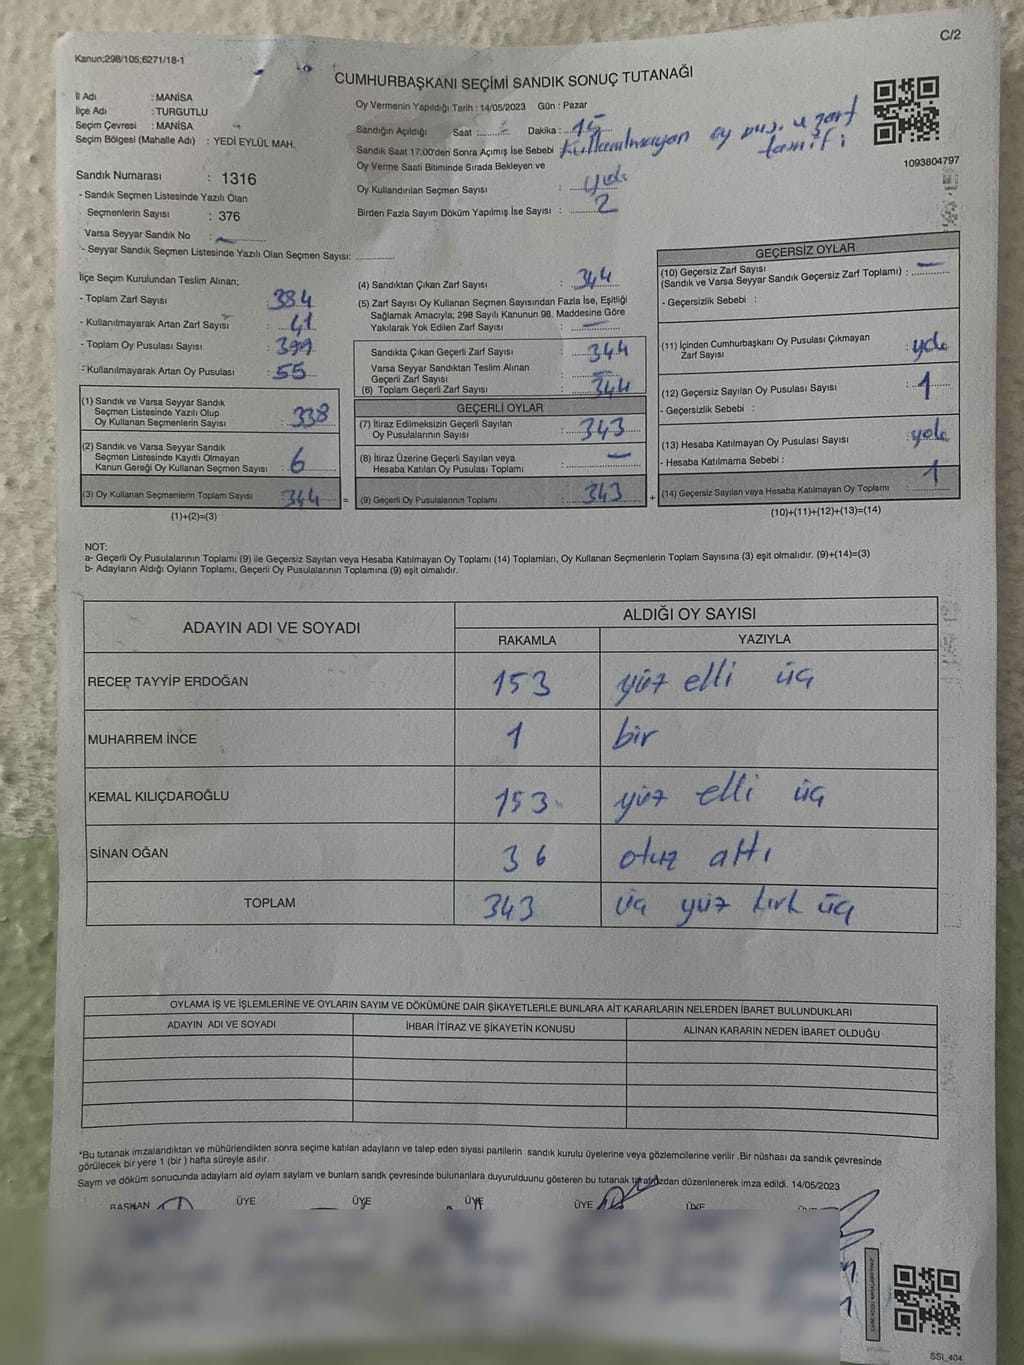 C/2
Kanun;298/105;6271/18-1
CUMHURBAŞKANI SEÇİMİ SANDIK SONUÇ TUTANAĞI
İl Adı : MANİSA
İlçe Adı : TURGUTLU
Seçim Çevresi : MANİSA
Seçim Bölgesi (Mahalle Adı) : YEDİ EYLÜL MAH.
Sandık Numarası : 1316
- Sandık Seçmen Listesinde Yazılı Olan
Seçmenlerin Sayısı : 376
Varsa Seyyar Sandık No
- Seyyar Sandık Seçmen Listesinde Yazılı Olan Seçmen Sayısı:
Oy Vermenin Yapıldığı Tarih : 14/05/2023 Gün : Pazar
Sandığın Açıldığı Saat : Dakika : 15
Sandık Saat 17:00'den Sonra Açımış İse Sebebi : Kullanılmayan oy pus. ve zarf
tasnifi
Oy Verme Saati Bitiminde Sırada Bekleyen ve
Oy Kullandırılan Seçmen Sayısı : yok
Birden Fazla Sayım Döküm Yapılmış İse Sayısı : 2
1093804797
İlçe Seçim Kurulundan Teslim Alınan;
- Toplam Zarf Sayısı : 384
- Kullanılmayarak Artan Zarf Sayısı : 41
- Toplam Oy Pusulası Sayısı : 399
- Kullanılmayarak Artan Oy Pusulası : 55
(1) Sandık ve Varsa Seyyar Sandık
Seçmen Listesinde Yazılı Olup
Oy Kullanan Seçmenlerin Sayısı : 338
(2) Sandık ve Varsa Seyyar Sandık
Seçmen Listesinde Kayıtlı Olmayan
Kanun Gereği Oy Kullanan Seçmen Sayısı : 6
(3) Oy Kullanan Seçmenlerin Toplam Sayısı : 344 =
(1)+(2)=(3)
(4) Sandıktan Çıkan Zarf Sayısı : 344
(5) Zarf Sayısı Oy Kullanan Seçmen Sayısından Fazla İse, Eşitliği
Sağlamak Amacıyla; 298 Sayılı Kanunun 98. Maddesine Göre
Yakılarak Yok Edilen Zarf Sayısı : —
Sandıkta Çıkan Geçerli Zarf Sayısı : 344
Varsa Seyyar Sandıktan Teslim Alınan
Geçerli Zarf Sayısı :
(6) Toplam Geçerli Zarf Sayısı : 344
GEÇERLİ OYLAR
(7) İtiraz Edilmeksizin Geçerli Sayılan
Oy Pusulalarının Sayısı : 343
(8) İtiraz Üzerine Geçerli Sayılan veya
Hesaba Katılan Oy Pusulası Toplamı : —
(9) Geçerli Oy Pusulalarının Toplamı : 343 +
GEÇERSİZ OYLAR
(10) Geçersiz Zarf Sayısı
(Sandık ve Varsa Seyyar Sandık Geçersiz Zarf Toplamı) : —
- Geçersizlik Sebebi :
(11) İçinden Cumhurbaşkanı Oy Pusulası Çıkmayan
Zarf Sayısı : yok
(12) Geçersiz Sayılan Oy Pusulası Sayısı : 1
- Geçersizlik Sebebi :
(13) Hesaba Katılmayan Oy Pusulası Sayısı : yok
- Hesaba Katılmama Sebebi :
(14) Geçersiz Sayılan veya Hesaba Katılmayan Oy Toplamı : 1
(10)+(11)+(12)+(13)=(14)
NOT:
a- Geçerli Oy Pusulalarının Toplamı (9) ile Geçersiz Sayılan veya Hesaba Katılmayan Oy Toplamı (14) Toplamları, Oy Kullanan Seçmenlerin Toplam Sayısına (3) eşit olmalıdır. (9)+(14)=(3)
b- Adayların Aldığı Oyların Toplamı, Geçerli Oy Pusulalarının Toplamına (9) eşit olmalıdır.
ADAYIN ADI VE SOYADI ALDIĞI OY SAYISI
RAKAMLA YAZIYLA
RECEP TAYYİP ERDOĞAN 153 yüz elli üç
MUHARREM İNCE 1 bir
KEMAL KILIÇDAROĞLU 153 yüz elli üç
SİNAN OĞAN 36 otuz altı
TOPLAM 343 üç yüz kırk üç
OYLAMA İŞ VE İŞLEMLERİNE VE OYLARIN SAYIM VE DÖKÜMÜNE DAİR ŞİKAYETLERLE BUNLARA AİT KARARLARIN NELERDEN İBARET BULUNDUKLARI
ADAYIN ADI VE SOYADI İHBAR İTİRAZ VE ŞİKAYETİN KONUSU ALINAN KARARIN NEDEN İBARET OLDUĞU
*Bu tutanak imzalandıktan ve mühürlendikten sonra seçime katılan adayların ve talep eden siyasi partilerin sandık kurulu üyelerine veya gözlemcilerine verilir .Bir nüshası da sandık çevresinde
görülecek bir yere 1 (bir ) hafta süreyle asılır.
Sayım ve döküm sonucunda adayların aldığı oyların sayım ve bunların sandık çevresinde bulunanlara duyurulduunu gösteren bu tutanak tarafımızdan düzenlenerek imza edildi. 14/05/2023
BAŞKAN ÜYE ÜYE ÜYE ÜYE ÜYE
SSİ_404